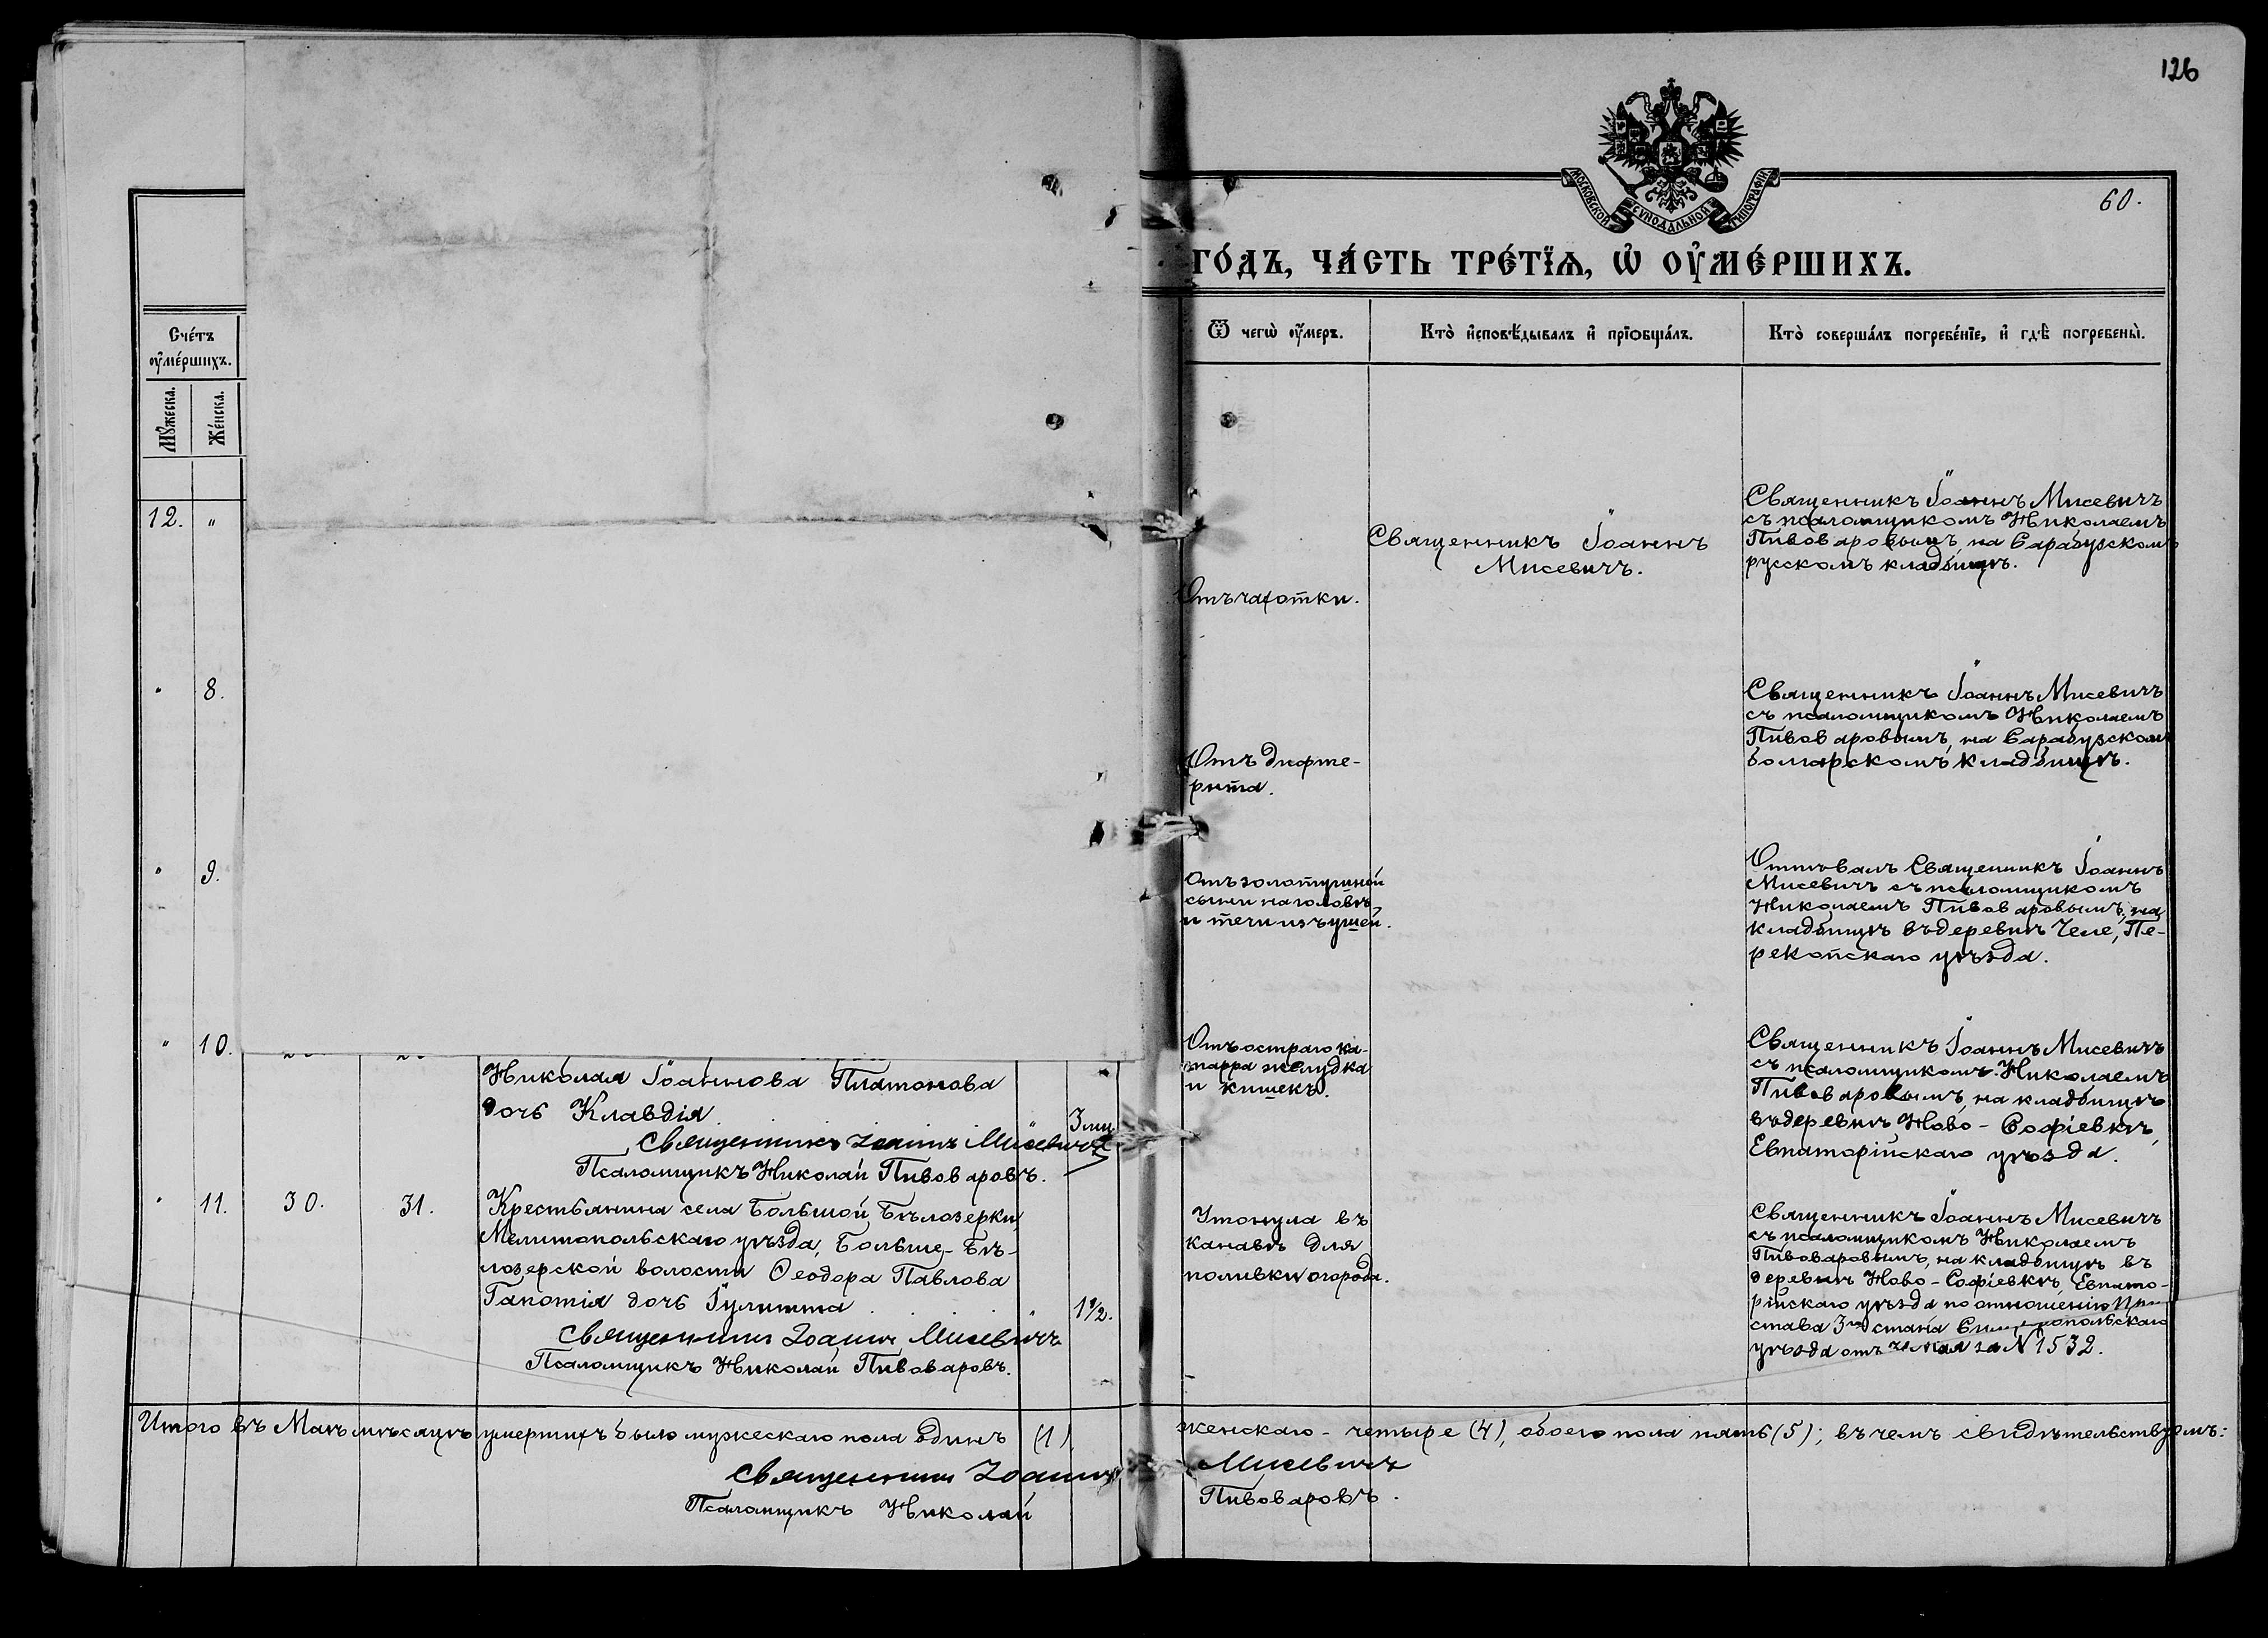 126
МОСКОВСКОЙ СѴНОДАЛЬНОЙ ТИПОГРАФІИ
60.
го́дъ, ча́сть тре́тїѧ, ѡ҆ оу҆ме́ршихъ.
Сче́тъ
оу҆ме́ршихъ.
Мꙋ́жеска.
Же́нска.
Ѿ чегѡ̀ оу҆́меръ.
Кто̀ и҆сповѣ́дывалъ и҆ прїѡбща́лъ.
Кто̀ соверша́лъ погребе́нїе, и҆ гдѣ̀ погребены̀.
12. "
Отъ чахотки.
Священникъ Іоаннъ
Мисевичъ.
Священникъ Іоаннъ Мисевичъ
съ псаломщикомъ Николаемъ
Пивоваровымъ, на Сарабузскомъ
русскомъ кладбищѣ.
" 8.
Отъ дифте-
рита.
Священникъ Іоаннъ Мисевичъ
съ псаломщикомъ Николаемъ
Пивоваровымъ, на Сарабузском
болгарскомъ кладбищѣ.
" 9.
Отъ золотушной
сыпи на головѣ
и течи изъ ушей.
Отпѣвалъ Священникъ Іоаннъ
Мисевичъ съ псаломщикомъ
Николаемъ Пивоваровымъ, на
кладбищѣ въ деревнѣ Челе, Пе-
рекопскаго уѣзда.
" 10.
Николая Іоаннова Платонова
дочь Клавдія
3 мц
Священникъ Іоаннъ Мисевичъ
Псаломщикъ Николай Пивоваровъ.
Отъ остраго ка-
тарра желудка
и кишекъ.
Священникъ Іоаннъ Мисевичъ
съ псаломщикомъ Николаемъ
Пивоваровымъ, на кладбищѣ
въ деревнѣ Ново-Софіевкѣ,
Евпаторійскаго уѣзда.
" 11. 30. 31.
Крестьянина села Большой Бѣлозерки
Мелитопольскаго уѣзда, Больше-Бѣ-
лозерской волости Ѳеодора Павлова
Гапотія дочь Іулитта " 1½.
Священникъ Іоаннъ Мисевичъ
Псаломщикъ Николай Пивоваровъ.
Утонула въ
канавѣ для
поливки огорода.
Священникъ Іоаннъ Мисевичъ
съ псаломщикомъ Николаемъ
Пивоваровымъ, на кладбищѣ въ
деревнѣ Ново-Софіевкѣ, Евпато-
рійскаго уѣзда по отношенію При
става 3го стана Симферопольскаго
уѣзда отъ мая за № 1532.
Итого въ Маѣ мѣсяцѣ умершихъ было мужескаго пола одинъ (1), женскаго - четыре (4), обоего пола пять (5); въ чемъ свидѣтельствуемъ:
Священникъ Іоаннъ Мисевичъ
Псаломщикъ Николай Пивоваровъ.